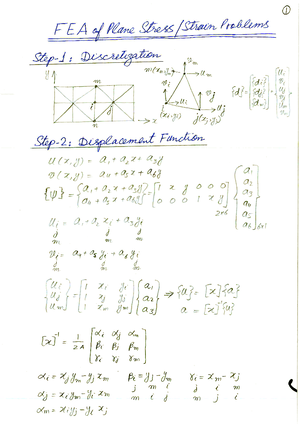 ①
FEA of Plane Stress/Strain Problems
Step-1: Discretization
y
x
n
i
m
m(xm, ym)
vm
um
vi
ui
(xi, yi)
vj
uj
j(xj, yj)
{d} = {di dj dm} = {ui vi uj vj um vm}
Step-2: Displacement Function
u(x,y) = a1 + a2x + a3y
v(x,y) = a4 + a5x + a6y
{ψ} = {a1 + a2x + a3y
a4 + a5x + a6y} = [1 x y 0 0 0
0 0 0 1 x y]2×6 {a1 a2 a3 a4 a5 a6}6×1
ui = a1 + a2 xi + a3 yi
j j j
m m m
vi = a4 + a5 xi + a6 yi
j j j
m m m
{ui uj um} = [1 xi yi
1 xj yj
1 xm ym] {a1 a2 a3} ⇒ {u} = [x]{a}
a = [x]⁻¹{u}
[x]⁻¹ = 1/2A [αi αj αm
βi βj βm
γi γj γm]
αi = xj ym - yj xm βi = yj - ym γi = xm - xj
j m i j i m
αj = xm yi - ym xi m i j m j i
αm = xi yj - yi xj